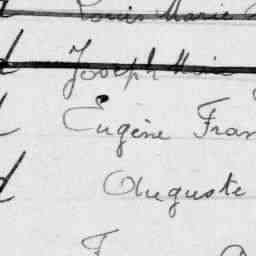 Louis Marie
Joseph Marie
Eugène Fran
Auguste
F